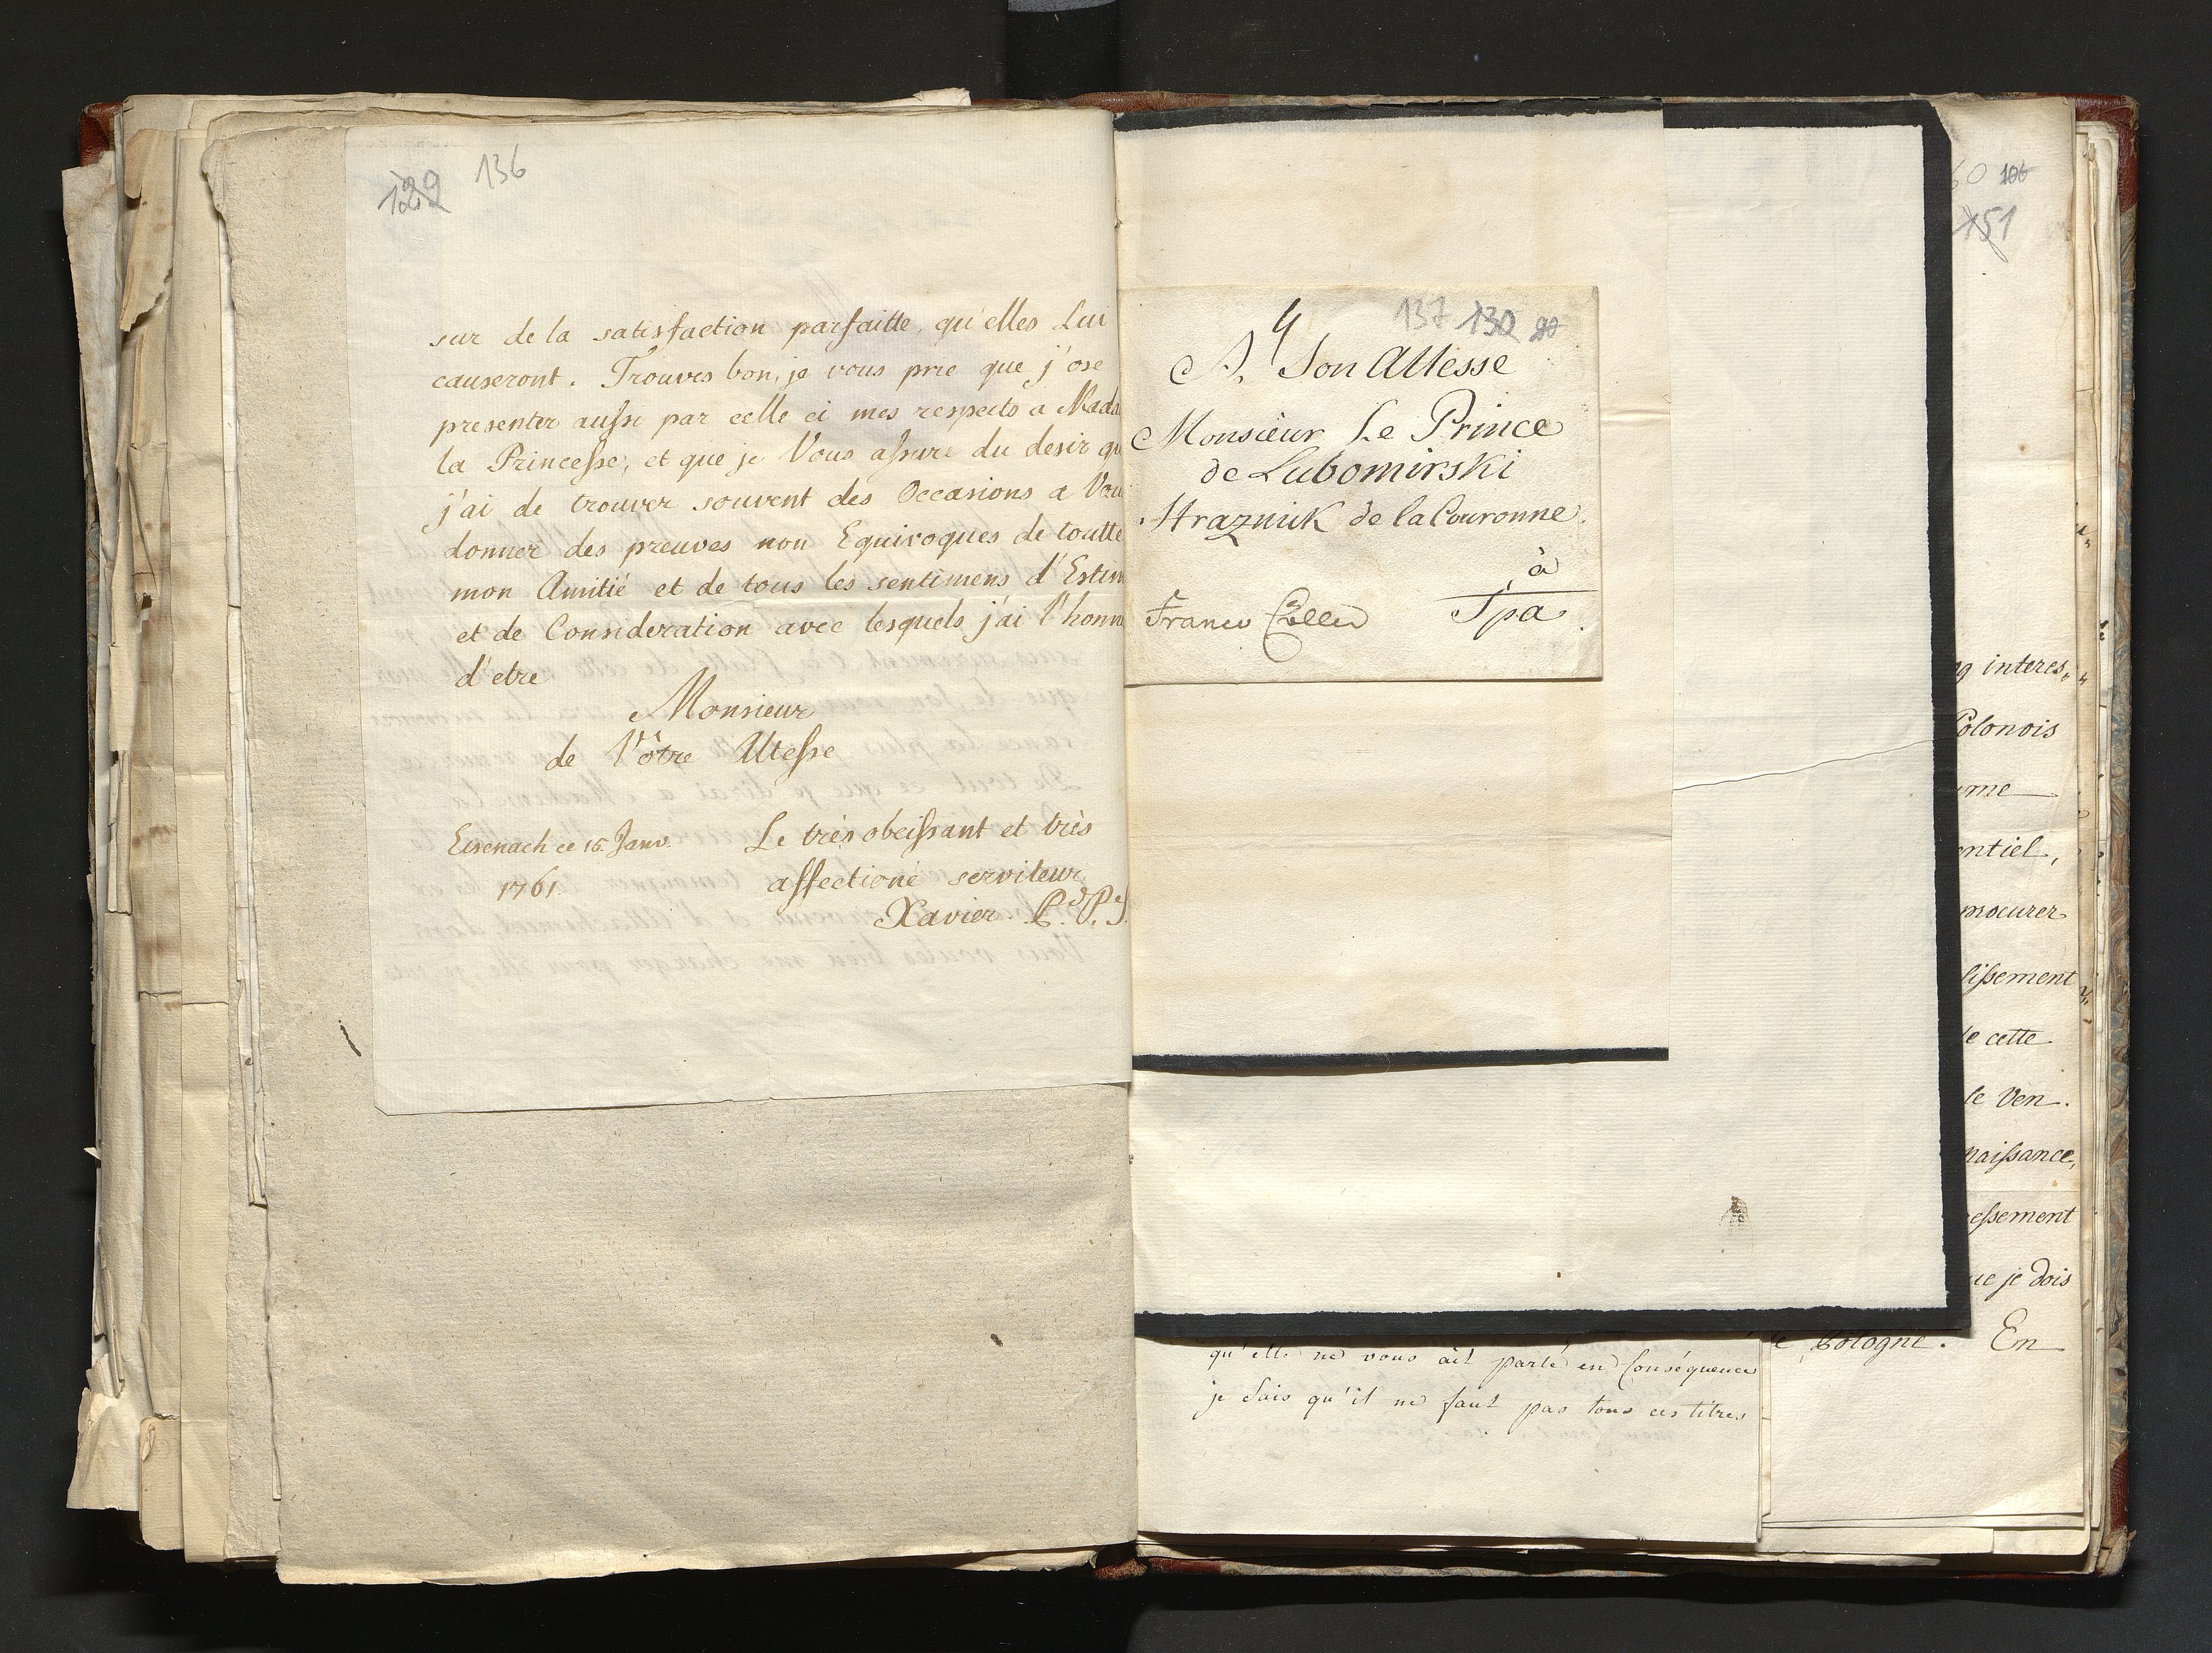 129 136
sur de la satisfaction parfaitte, qu'elles Lui
causeront. Trouves bon, je vous prie que j'ose
presenter aussi par celle ci mes respects a Mada
la Princesse, et que je Vous assure du desir qu
j'ai de trouver souvent des Occasions a Vou
donner des preuves non Equivoques de toutte
mon Amitié et de tous les sentimens d'Estim
et de Consideration avec lesquels j'ai l'honn
d'etre
Monsieur
de Vôtre Altesse
Eisenach ce 15. Janv. Le très obeissant et très
1761 affectioné serviteur
Xavier P.d.P.
137 130 90
A, Son Altesse
Monsieur Le Prince
de Lubomirski
Straznik de la Couronne.
à
Franco Spa.
qu'elle ne vous ait parlé en Conséquence
je sais qu'il ne faut pas tous ces titres
60 106
151
interes,
Polonois
me
entiel,
procurer
lissement
de cette
le Ven.
naissance,
essement
ue je dois
Pologne. En